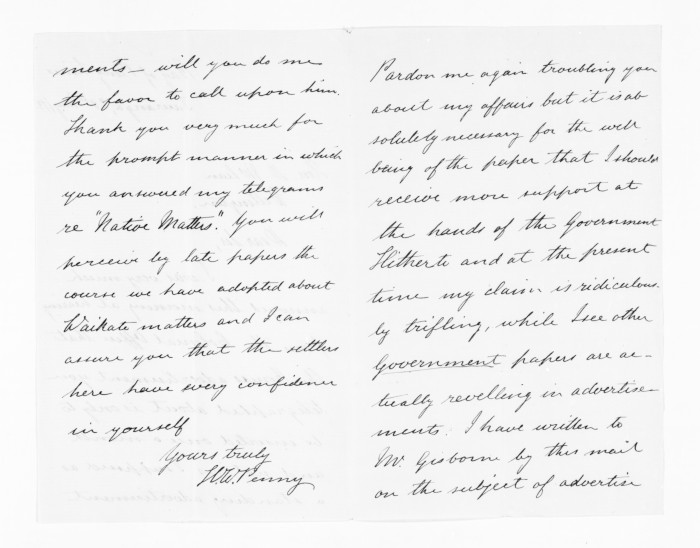 Pardon me again troubling you
about my affairs but it is ab
solutely necessary for the well
being of the paper that I should
receive more support at
the hands of the Government
Hitherto and at the present
time my claim is ridiculous.
ly trifling, while I see other
Government papers are ac-
tually revelling in advertise-
ments. I have written to
Mr. Gisborne by this mail
on the subject of advertise
ments - will you do me
the favor to call upon him.
Thank you very much for
the prompt manner in which
you answered my telegrams
re "Native Matters." You will
perceive by late papers the
course we have adopted about
Waikato matters and I can
assure you that the settlers
here have every confidence
in yourself
Yours truly
H.W. Penny